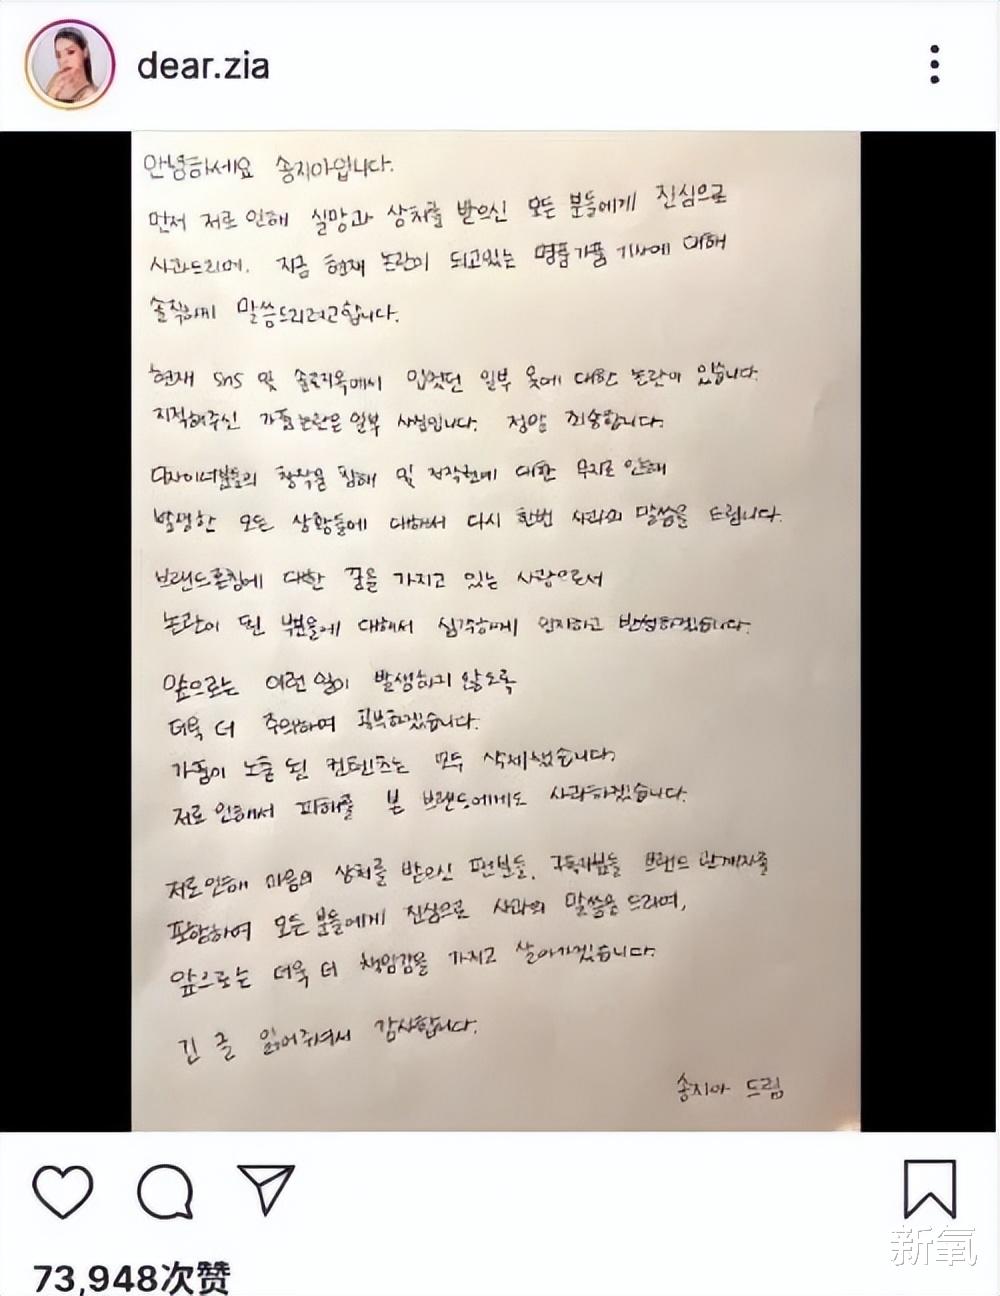 dear.zia
안녕하세요 송지아입니다.
먼저 저로 인해 실망과 상처를 받으신 모든 분들에게 진심으로
사과드리며, 지금 현재 논란이 되고있는 명품가품 기사에 대해
솔직하게 말씀드리려고합니다.
현재 sns 및 솔로지옥에서 입었던 일부 옷에 대한 논란이 있습니다.
지적해주신 가품논란은 일부 사실입니다. 정말 죄송합니다.
디자이너분들의 창작물 침해 및 저작권에 대한 무지로 인해
발생한 모든 상황들에 대해서 다시 한번 사과의 말씀을 드립니다.
브랜드론칭에 대한 꿈을 가지고 있는 사람으로서
논란이 된 부분들에 대해서 심각하게 인지하고 반성하겠습니다.
앞으로는 이런 일이 발생하지 않도록
더욱 더 주의하며 공부하겠습니다.
가품이 노출 된 컨텐츠는 모두 삭제했습니다.
저로 인해서 피해를 본 브랜드에게도 사과하겠습니다.
저로인해 마음의 상처를 받으신 팬분들, 구독자분들 브랜드 관계자를
포함하여 모든 분들에게 진심으로 사과의 말씀을 드리며,
앞으로는 더욱 더 책임감을 가지고 살아가겠습니다.
긴 글 읽어주셔서 감사합니다.
송지아 드림
新氧
73,948次赞